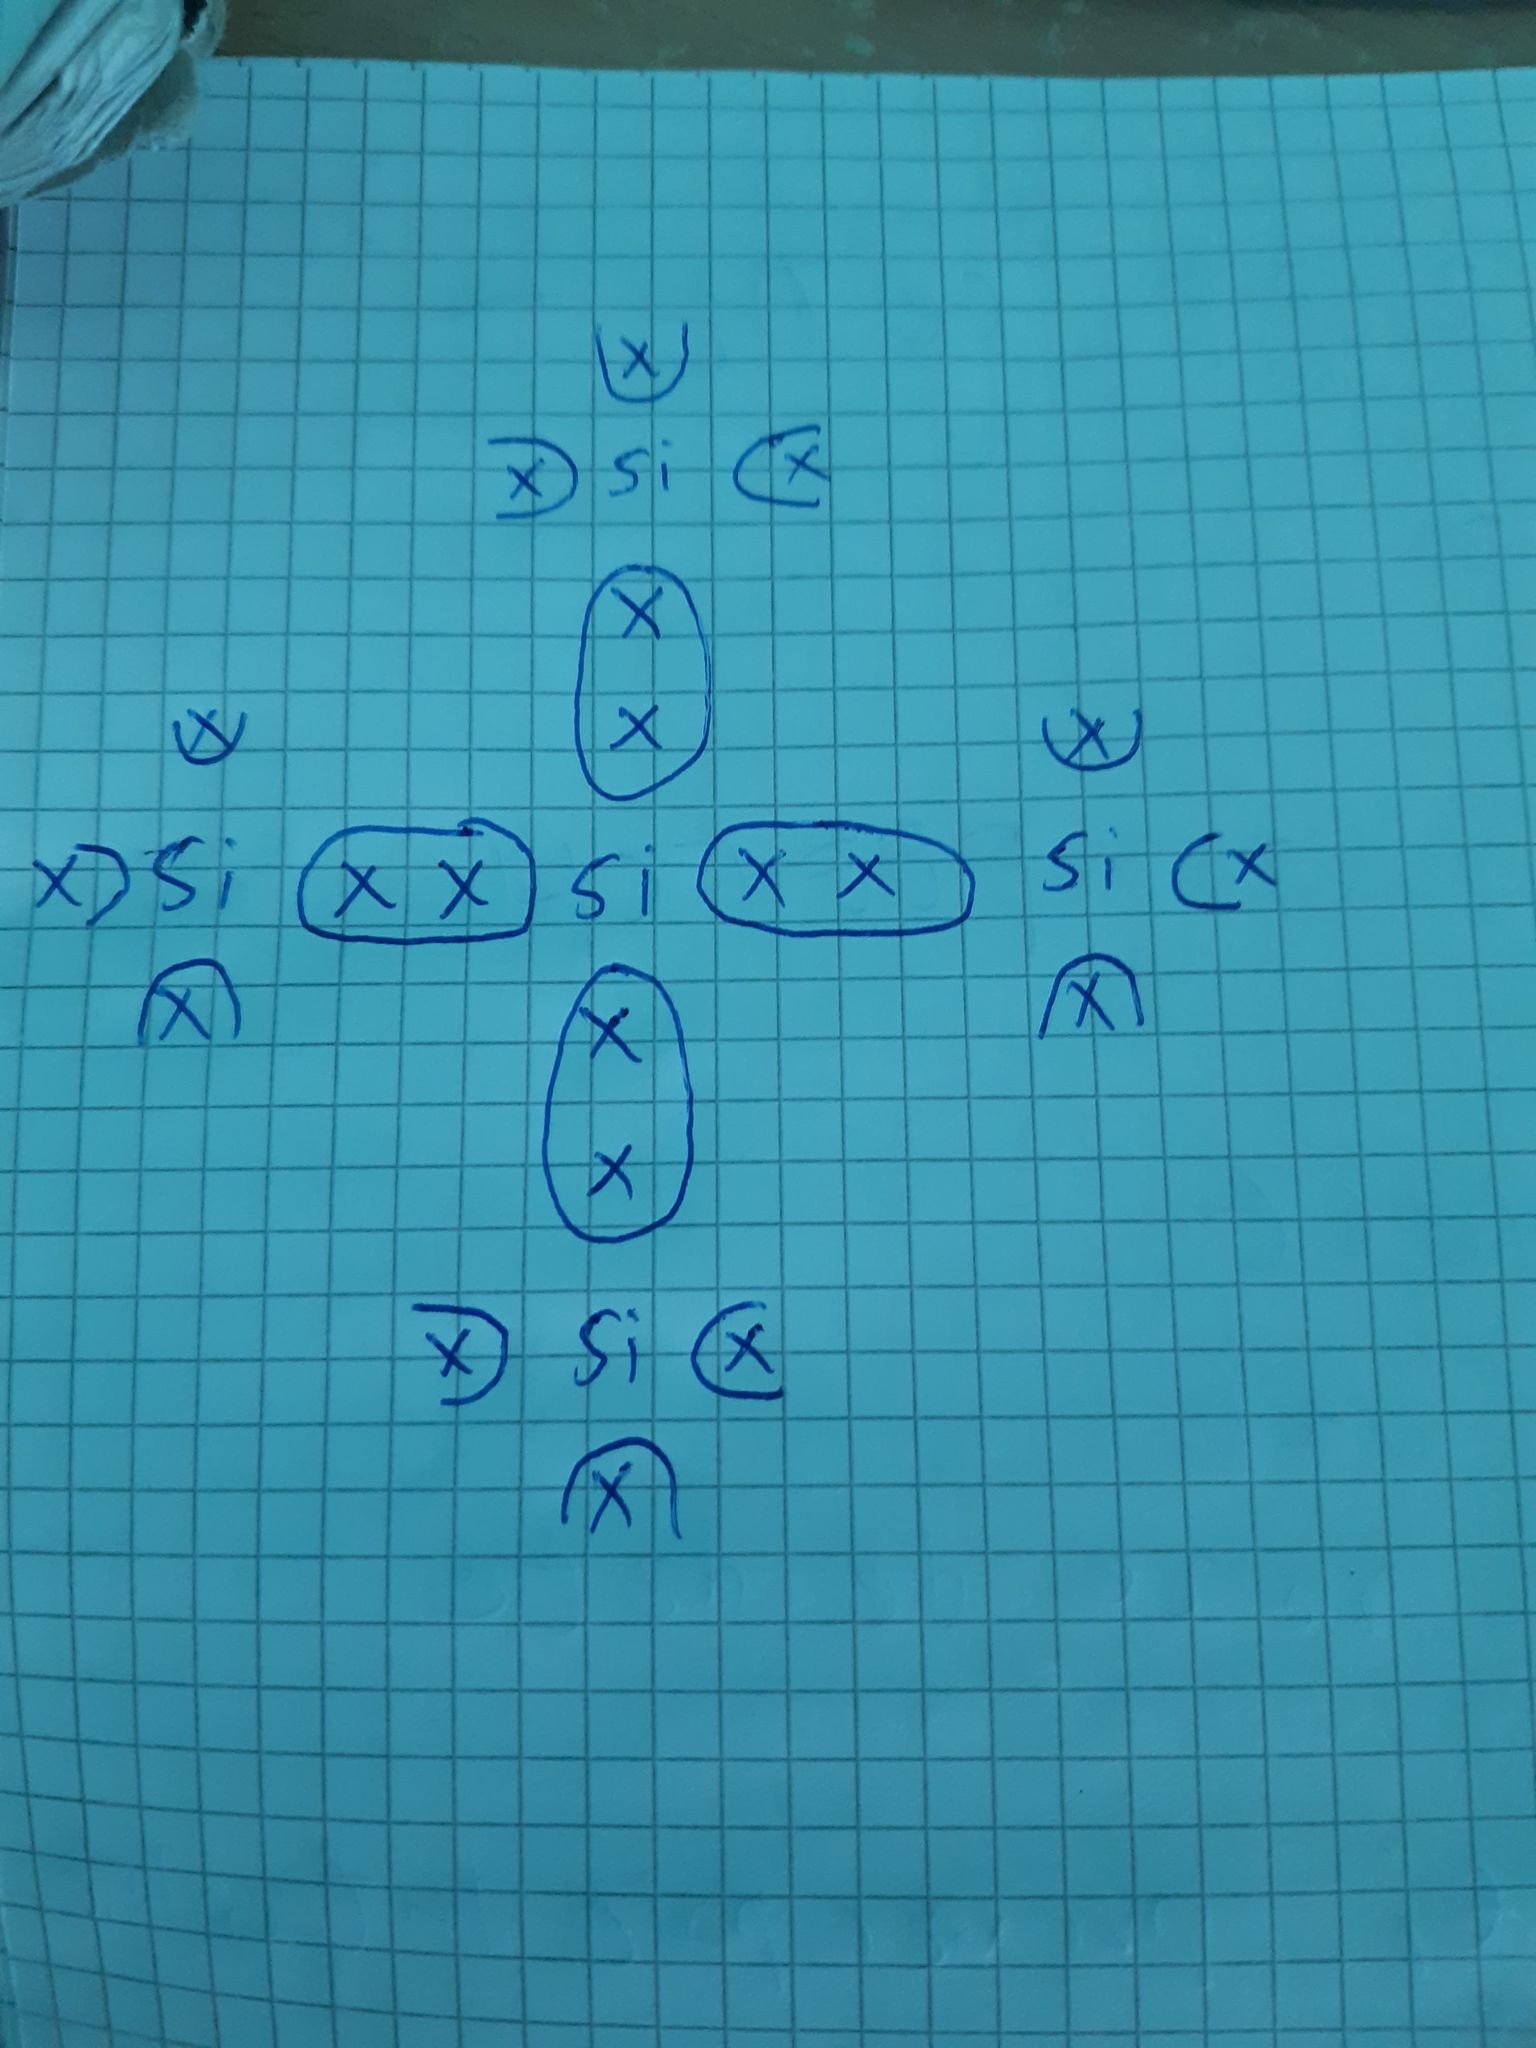 X
X Si X
X
X
X X
X Si X X Si X X Si X
X X
X
X
X Si X
X